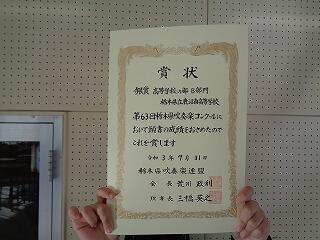 賞状
銀賞 高等学校の部 B部門
栃木県立鹿沼南高等学校
第63回栃木県吹奏楽コンクールに
おいて頭書の成績をおさめたので
これを賞します
令和3年7月31日
栃木県吹奏楽連盟
会長 荒川政利
理事長 三橋英之